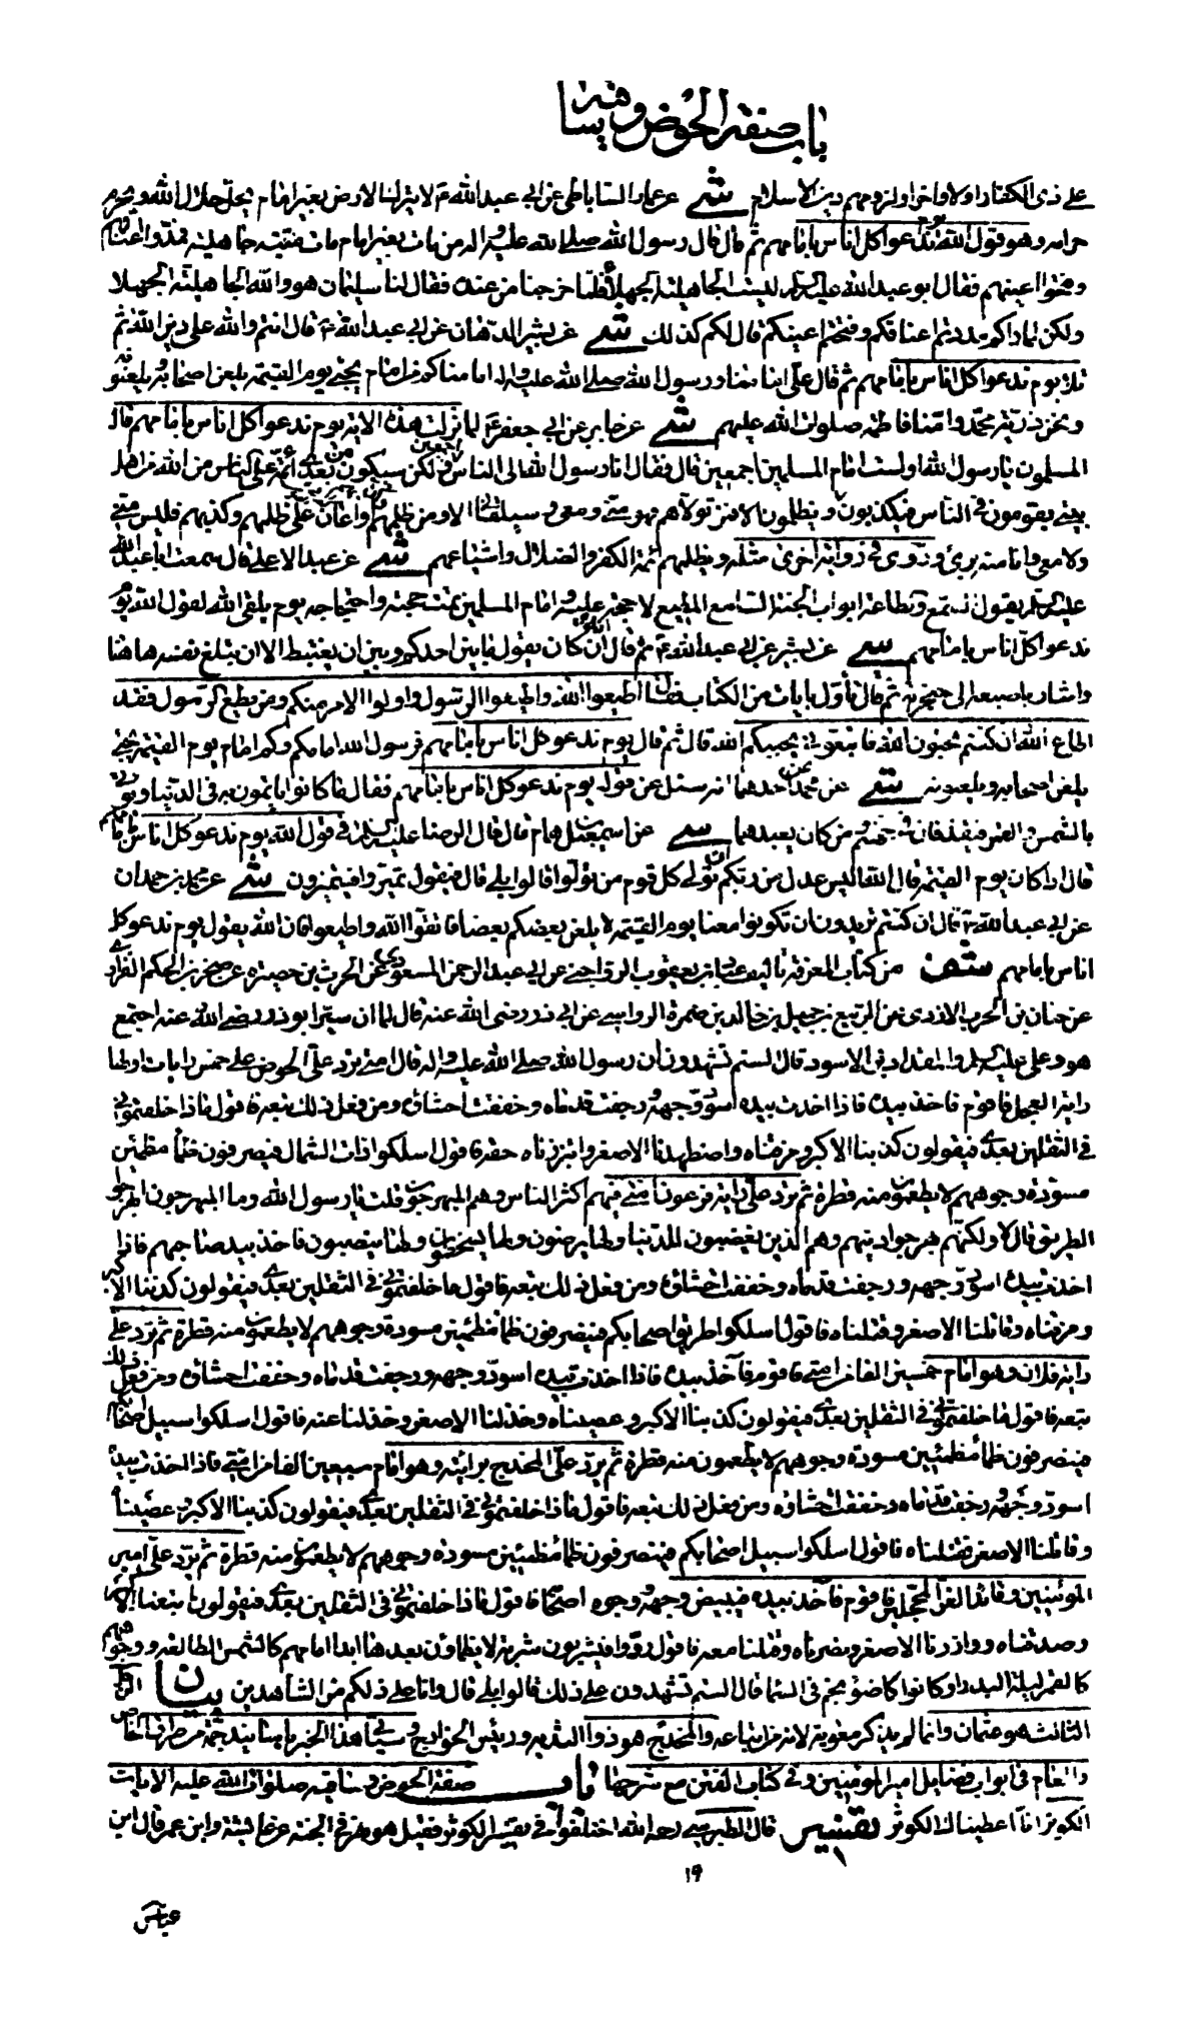 باب صفة الحوض وفيه
على ذى الكفار اولا واخرا ولزومهم دين الاسلام شى عن عمار الساباطى عن ابى عبد الله ع لا يترك الارض بغير امام يحل حلال الله ويحرم
حرامه وهو قول الله يوم ندعوا كل اناس بامامهم ثم قال قال رسول الله صلى الله عليه واله من مات بغير امام مات ميتة جاهلية فمدوا اعناقهم
وفتحوا اعينهم فقال ابو عبد الله عليه السلام ليست الجاهلية الجهلاء فلما خرجنا من عنده فقال لنا سليمان هو والله الجاهلية الجهلاء
ولكن لما راكم مددتم اعناقكم وفتحتم اعينكم قال لكم كذلك شى عن بشير الدهان عن ابى عبد الله ع قال انتم والله على دين الله ثم
تلا يوم ندعوا كل اناس بامامهم ثم قال على امامنا ورسول الله صلى الله عليه واله امامنا كم من امام يجئ يوم القيمة يلعن اصحابه ويلعنونه
ونحن ذرية محمد وامنا فاطمة صلوات الله عليهم شى عن جابر عن ابى جعفر ع لما نزلت هذه الاية يوم ندعوا كل اناس بامامهم قال
المسلمون يا رسول الله اولست امام المسلمين اجمعين قال فقال انا رسول الله الى الناس اجمعين ولكن سيكون بعدى ائمة على الناس من الله من اهل
بيتى يقومون فى الناس فيكذبون ويظلمون الا فمن تولاهم فهو منى ومعى وسيلقانى الا ومن ظلمهم واعان على ظلمهم وكذبهم فليس منى
ولا معى وانا منه برئ وروى فى رواية اخرى مثله ويظلمهم ائمة الكفر والضلال واشياعهم شى عن عبد الاعلى قال سمعت ابا عبد الله
عليه السلام يقول السمع والطاعة ابواب الجنة السامع المطيع لا حجة عليه وامام المسلمين تمت حجته واحتجاجه يوم يلقى الله لقول الله يوم
ندعوا كل اناس بامامهم شى عن بشير عن ابى عبد الله ع انه كان يقول ما بين احدكم وبين ان يغتبط الا ان تبلغ نفسه هاهنا
واشار باصبعه الى حنجرته ثم قال تأول بايات من الكتاب فقال اطيعوا الله واطيعوا الرسول واولوا الامر منكم ومن يطع الرسول فقد
اطاع الله ان كنتم تحبون الله فاتبعونى يحببكم الله قال ثم قال يوم ندعو كل اناس بامامهم فرسول الله امامكم وكم امام يوم القيمة يجئ
يلعن اصحابه ويلعنونه شى عن محمد عن احدهما انه سئل عن قوله يوم ندعو كل اناس بامامهم فقال ما كانوا ياتمون به فى الدنيا ويؤتى
بالشمس والقمر فيقذفان فى جهنم ومن كان يعبدهما شى عن اسمعيل بن همام قال قال الرضا عليه السلام فى قول الله يوم ندعو كل اناس بامامهم
قال اذا كان يوم القيمة قال الله اليس عدل من ربكم ان نولى كل قوم من تولوا قالوا بلى قال فيقول تميزوا فيتميزون شى عن محمد بن حمدان
عن ابى عبد الله ع قال ان كنتم تريدون ان تكونوا معنا يوم القيمة لا يلعن بعضكم بعضا فاتقوا الله واطيعوا فان الله يقول يوم ندعو كل
اناس بامامهم شف من كتاب المعرفة تاليف عباد بن يعقوب الرواجنى عن ابى عبد الرحمن المسعودى عن الحرث بن حصيرة عن صخر بن الحكم الفزارى
عن حنان بن الحرب الازدى عن الربيع بن جميل بن خالد بن ضمرة الرواسى عن ابى ذر رضى الله عنه قال لما ان سير ابو ذر رضى الله عنه اجتمع
هو وعلى عليه السلم والمقداد بن الاسود قال الستم تشهدون ان رسول الله صلى الله عليه واله قال امتى ترد على الحوض على خمس رايات اولها
راية العجل فاقوم فاخذ بيده فاذا اخذت بيده اسود وجهه ورجفت قدماه وخفقت احشاؤه ومن فعل ذلك تبعه فاقول ماذا خلفتمونى
فى الثقلين بعدى فيقولون كذبنا الاكبر ومزقناه واضطهدنا الاصغر وابتززناه حقه فاقول اسلكوا ذات الشمال فيصرفون ظماء مظمئين
مسودة وجوههم لا يطعمون منه قطرة ثم ترد على راية فرعون امتى فهم اكثر الناس وهم المبهرجون قلت يا رسول الله وما المبهرجون ابهرجوا
الطريق قال لا ولكنهم بهرجوا دينهم وهم الذين يغضبون للدنيا ولها يرضون ولها يسخطون ولها ينصبون فاخذ بيد صاحبهم فاذا
اخذت بيده اسود وجهه ورجفت قدماه وخفقت احشاؤه ومن فعل ذلك تبعه فاقول ما خلفتمونى فى الثقلين بعدى فيقولون كذبنا الاكبر
ومزقناه وقاتلنا الاصغر وقتلناه فاقول اسلكوا طريق اصحابكم فينصرفون ظماء مظمئين مسودة وجوههم لا يطعمون منه قطرة ثم ترد على
راية فلان وهو امام خمسين الفا من امتى فاقوم فآخذ بيده فاذا اخذت بيده اسود وجهه ورجفت قدماه وخفقت احشاؤه ومن فعل ذلك
تبعه فاقول ما خلفتمونى فى الثقلين بعدى فيقولون كذبنا الاكبر وعصيناه وخذلنا الاصغر وخذلنا عنه فاقول اسلكوا سبيل اصحابكم
فينصرفون ظماء مظمئين مسودة وجوههم لا يطعمون منه قطرة ثم يرد على المخدج برايته وهو امام سبعين الفا من امتى فاذا اخذت بيده
اسود وجهه ورجفت قدماه وخفقت احشاؤه ومن فعل ذلك تبعه فاقول ماذا خلفتمونى فى الثقلين بعدى فيقولون كذبنا الاكبر وعصيناه
وقاتلنا الاصغر فقتلناه فاقول اسلكوا سبيل اصحابكم فينصرفون ظماء مظمئين مسودة وجوههم لا يطعمون منه قطرة ثم يرد على امير
المؤمنين وقائد الغر المحجلين فاقوم فآخذ بيده فيبيض وجهه ووجوه اصحابه فاقول ماذا خلفتمونى فى الثقلين بعدى فيقولون اتبعنا الاكبر
وصدقناه ووازرنا الاصغر ونصرناه وقتلنا معه فاقول رووا فيشربون شربة لا يظماؤن بعدها ابدا امامهم كالشمس الطالعة ووجوههم
كالقمر ليلة البدر او كانوا كاضوء نجم فى السماء قال الستم تشهدون على ذلك قالوا بلى قال وانا على ذلكم من الشاهدين بيان الراية
الثالث هو عثمان وانما لم يذكر معوية لانه من اتباعه والمخدج هو ذو الثدية ورئيس الخوارج وسياتى هذا الخبر باسانيد جمة من طرق الخاص
والعام فى ابواب فضايل امير المؤمنين وفى كتاب الفتن مع شرحها باب صفة الحوض وساقيه صلوات الله عليه الايات
الكوثر انا اعطيناك الكوثر تفسير قال الطبرسى رحمه الله اختلفوا فى تفسير الكوثر فقيل هو نهر فى الجنة عن عايشة وابن عمر قال ابن
١٩
عباس